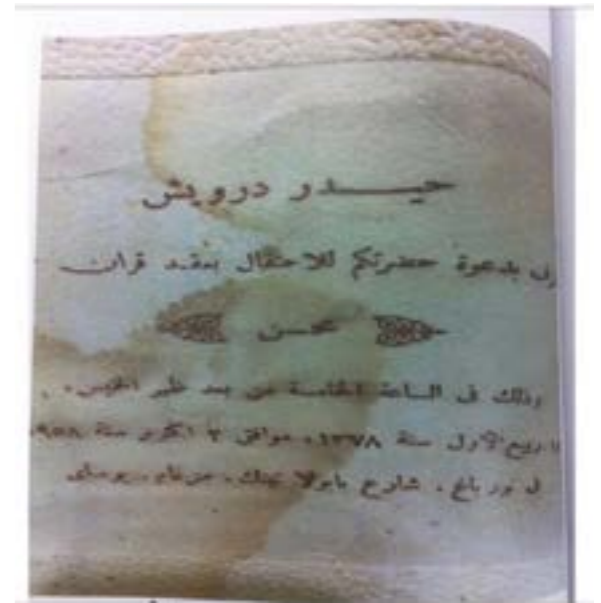 حيـــدر درويش
بدعوة حضرتكم للاحتفال بعقد قران
محسن
وذلك في الساعة الخامسة من بعد ظهر الخميس
ربيع الأول سنة ١٣٧٨ﻫ موافق ٢ اكتوبر سنة ٩٥٨
باغ ، شارع